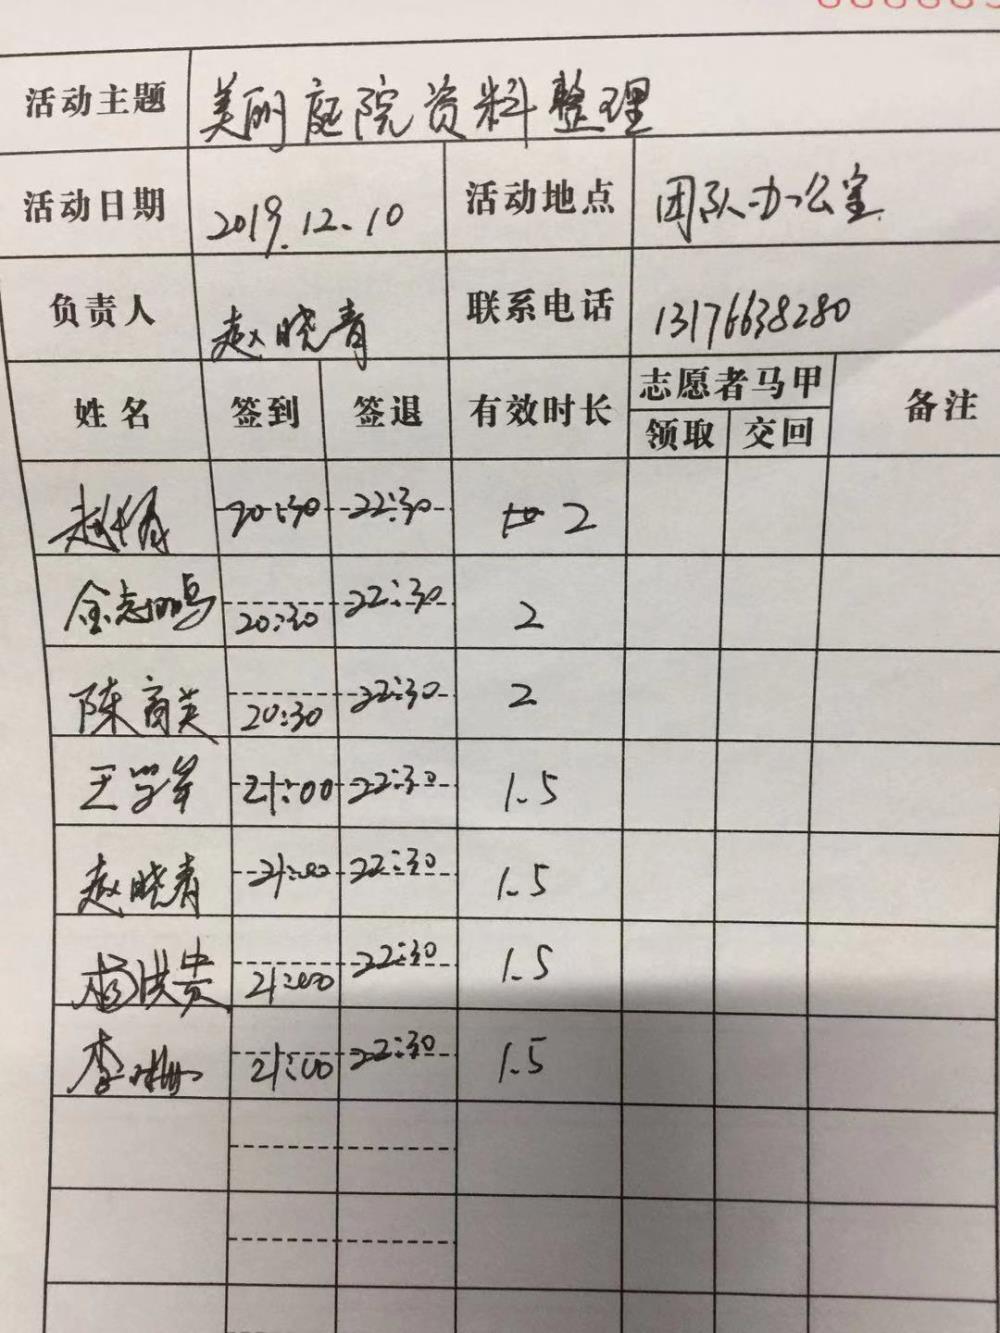 活动主题 美丽庭院资料整理
活动日期 2019.12.10 活动地点 团队办公室
负责人 赵晓青 联系电话 13176638280
姓名 签到 签退 有效时长 志愿者马甲 备注
领取 交回
20:30 22:30 2
金志鸣 20:30 22:30 2
陈商英 20:30 22:30 2
王学军 21:00 22:30 1.5
赵晓青 21:00 22:30 1.5
杨洪贵 21:00 22:30 1.5
李珊 21:00 22:30 1.5